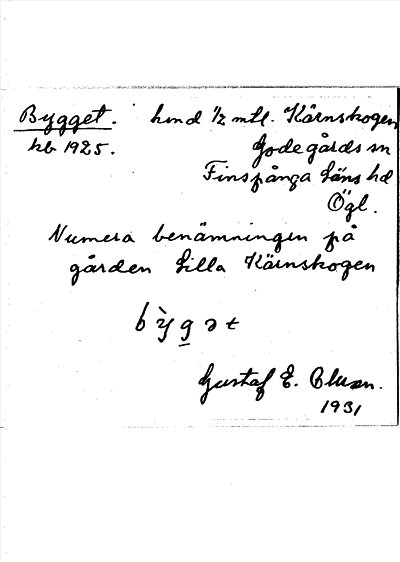 Bygget. hmd 1/2 mtl. Kärnskogen
kb 1925. Godegårds sn
Finspånga Läns hd
Ögl.
Numera benämningen på
gården Lilla Kärnskogen
bỳgət
Gustaf E.
1931